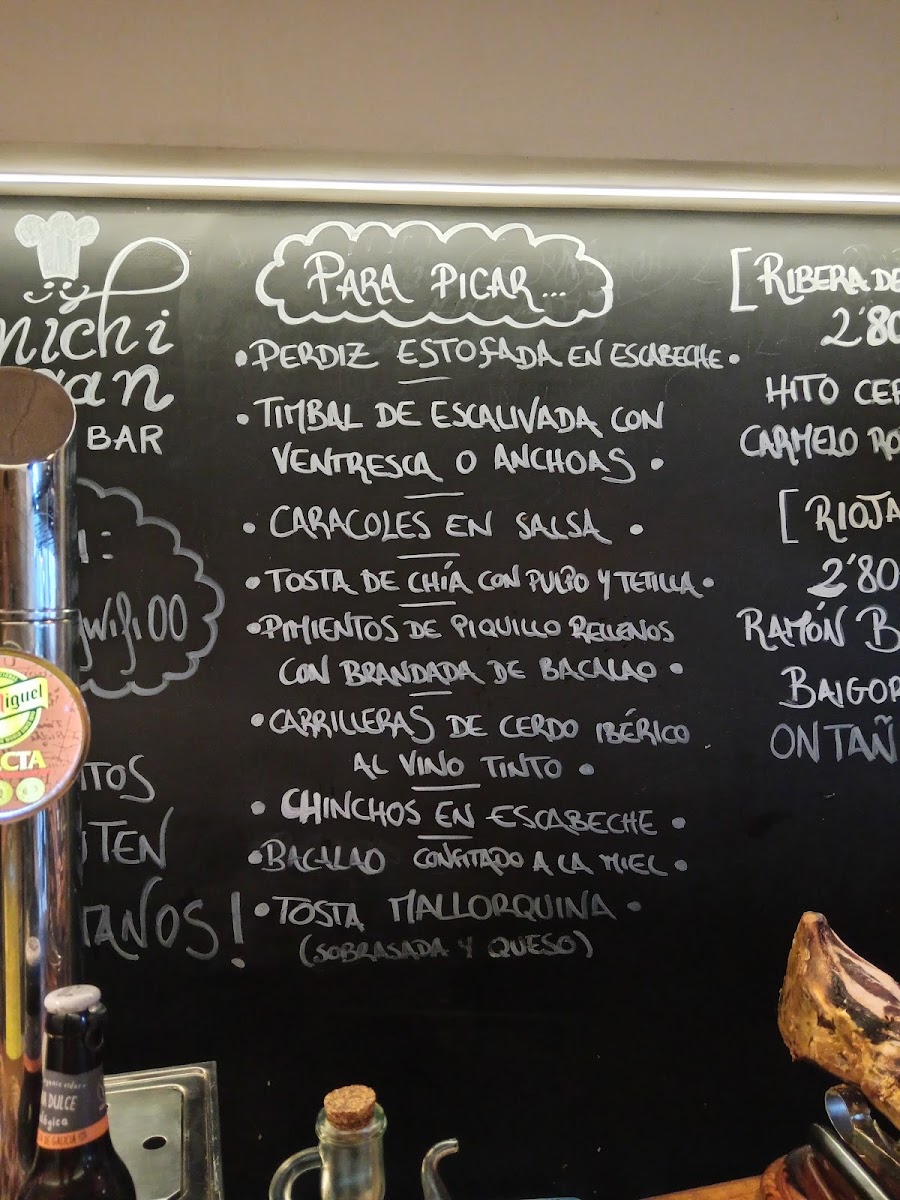 BAR
PARA PICAR...
• PERDIZ ESTOFADA EN ESCABECHE •
• TIMBAL DE ESCALIVADA CON
VENTRESCA O ANCHOAS •
• CARACOLES EN SALSA •
• TOSTA DE CHÍA CON PULPO Y TETILLA •
• PIMIENTOS DE PIQUILLO RELLENOS
CON BRANDADA DE BACALAO •
• CARRILLERAS DE CERDO IBÉRICO
AL VINO TINTO •
• CHINCHOS EN ESCABECHE •
• BACALAO CONFITADO A LA MIEL •
• TOSTA MALLORQUINA •
(SOBRASADA Y QUESO)
[RIBERA DE
2'80
HITO CE
CARMELO RO
[RIOJA
2'80
RAMÓN B
BAIGOR
ONTAÑ
DULCE